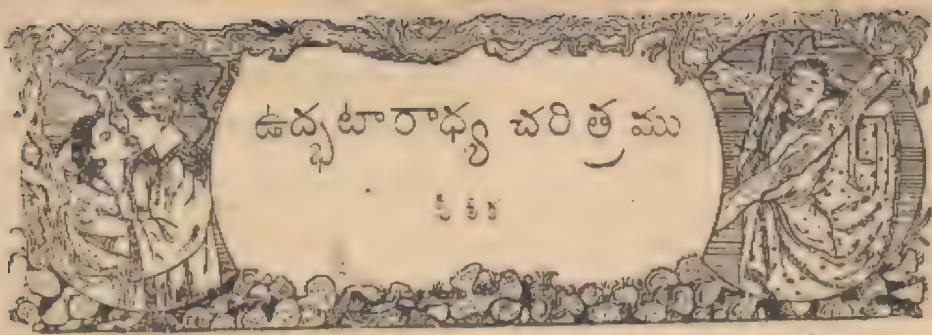 ఉద్భటారాధ్య చరిత్రము